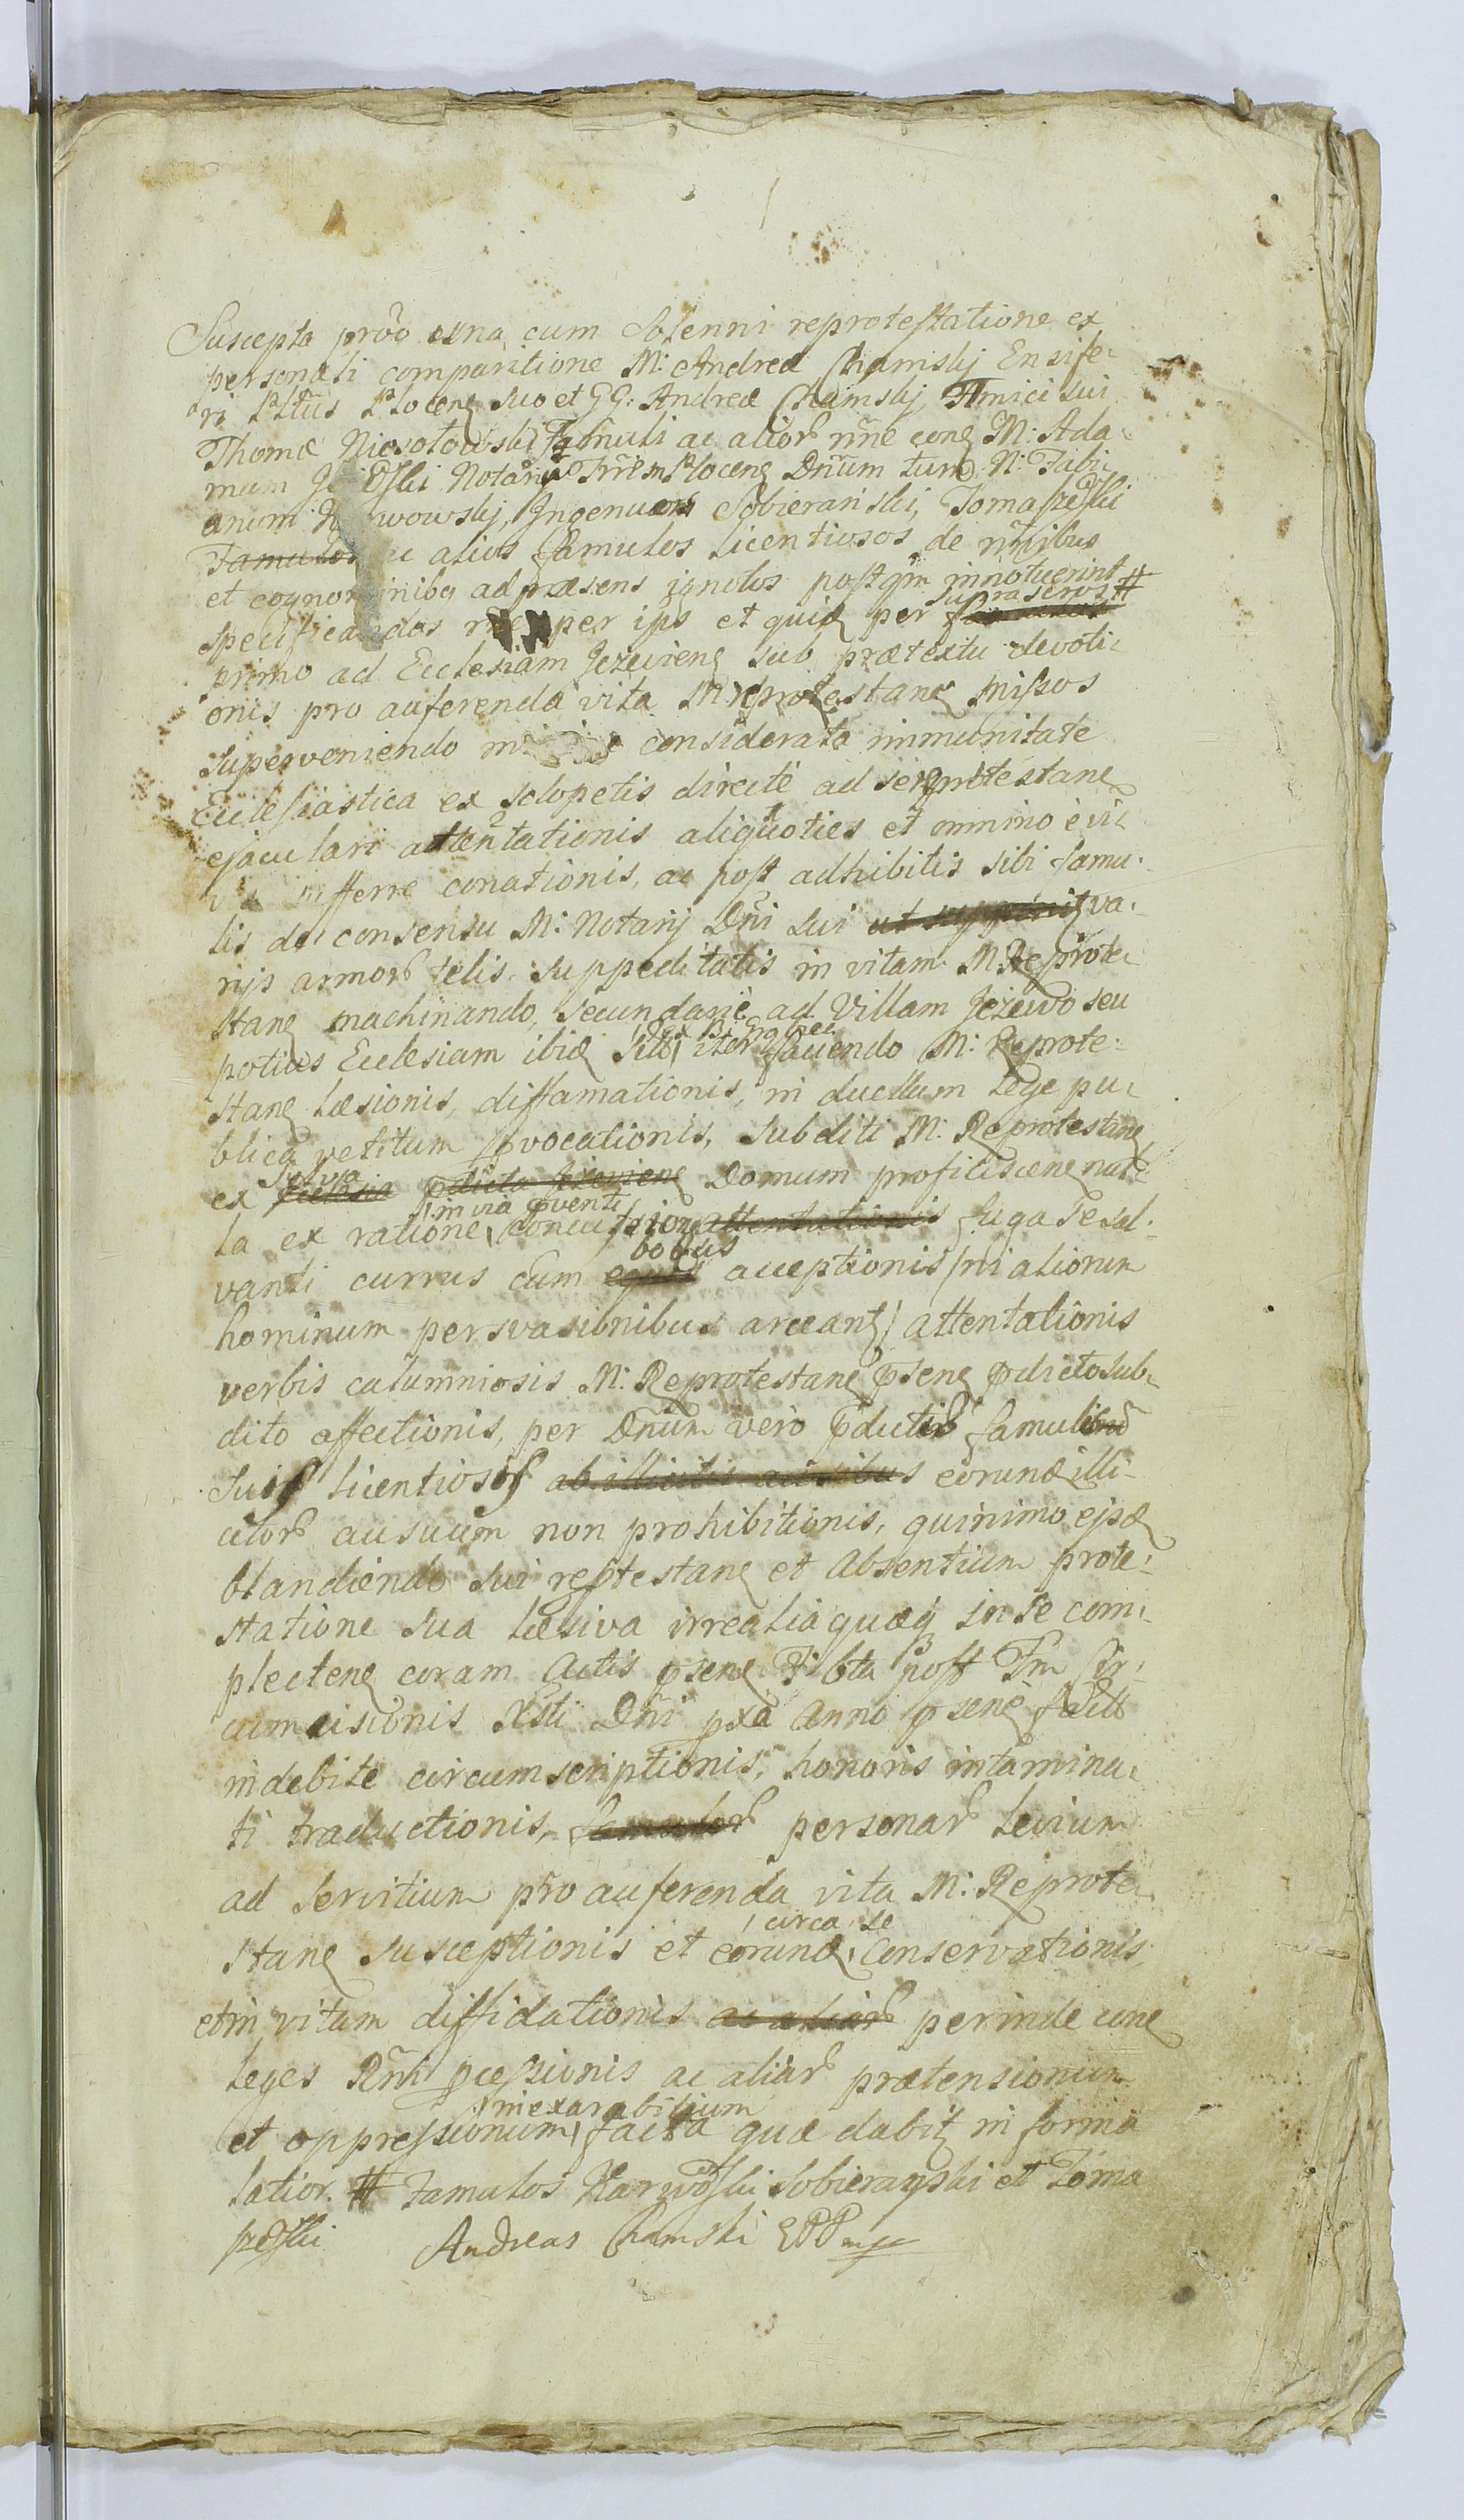 Suscepta pro̅o̅ una cum Solenni reprotestatione ex
personali comparitione M: Andreæ Chamskij Ensife-
ri Pltũs Plocenȩ suo et GG: Andreæ Chamskij, Amici sui
Thomæ Niesołowski Famuli ac alior. nñe conȩ M: Ada
mum Notariũ Trrẽm Plocenȩ Dñum tum N: Fabi
anum wowskij, Ingenuos Sobierański, Tomaszeski
Famulos alios famulos licentiosos de nñibus
et cognominibȩ ad præsens ignotos postqm̃ innotuerint
supra scros #
specificandos per ips et quidȩ per
primo ad Ecclesiam Jezevienȩ sub prætextu devoti-
onis pro auferenda vita M Reprotestanȩ missos
superveniendo considerata immunitate
Ecclesiastica ex sclopetis directè ad se Reprotestanȩ
ejaculari attentationis aliquoties et omnino è vi-
inferre conationis, ac post adhibitis sibi famu-
lis de consensu M: Notarij Dñi sui va-
rijs armor. telis suppeditatis in vitam M: Reprote-
stanȩ machinando, secundariè ad Villam Jeżewo seu
potius Ecclesiam ibidȩ sitȩ iter faciendo M: Reprote-
stanȩ læsionis, diffamationis, in duellum Lege pu-
blica vetitum pvocationis, subditi M: Reprotestanȩ
Sylva
ex Ecclesia pdicta Jezevienȩ Domum proficiscenȩ nul-
in via pventi
la ex ratione, concussionȩ attentationis fuga se sal-
bobus
vanti currus cum equis acceptionis /ni aliorum
hominum persvasionibus arceantȩ/ attentationis
verbis calumniosis M: Reprotestanȩ psenȩ pdicto sub-
dito affectionis, per Dñum verò pductis famulis
suis licentiosis ab illicitis ausibus eorundȩ illi-
citor. ausuum non prohibitionis, quinimo ejsdȩ
blandiendo sui reptestanȩ et Absentium prote-
statione sua læsiva irrealia quæq in se com-
plectenȩ coram Actis psenȩ Fr̃ bta post Fm Cir-
cumcisionis Xsti Dñi pxa Anno psenȩ
indebitè circumscriptionis, honoris intamina-
ti traductionis, famulor. personar. levium
ad servitium pro auferenda vita M: Reprote-
circa se
stanȩ susceptionis et eorundȩ, conservationis,
et in vitam diffidationis ac alior. perinde conȩ
leges Rñi pcessionis ac aliar. prætensionum
inexarabilium
et oppressionum, facta quæ dabitȩ in forma
latior. # Famulos Karwoski Sobierayski et Toma
szeski Andreas Chamski EPP mp